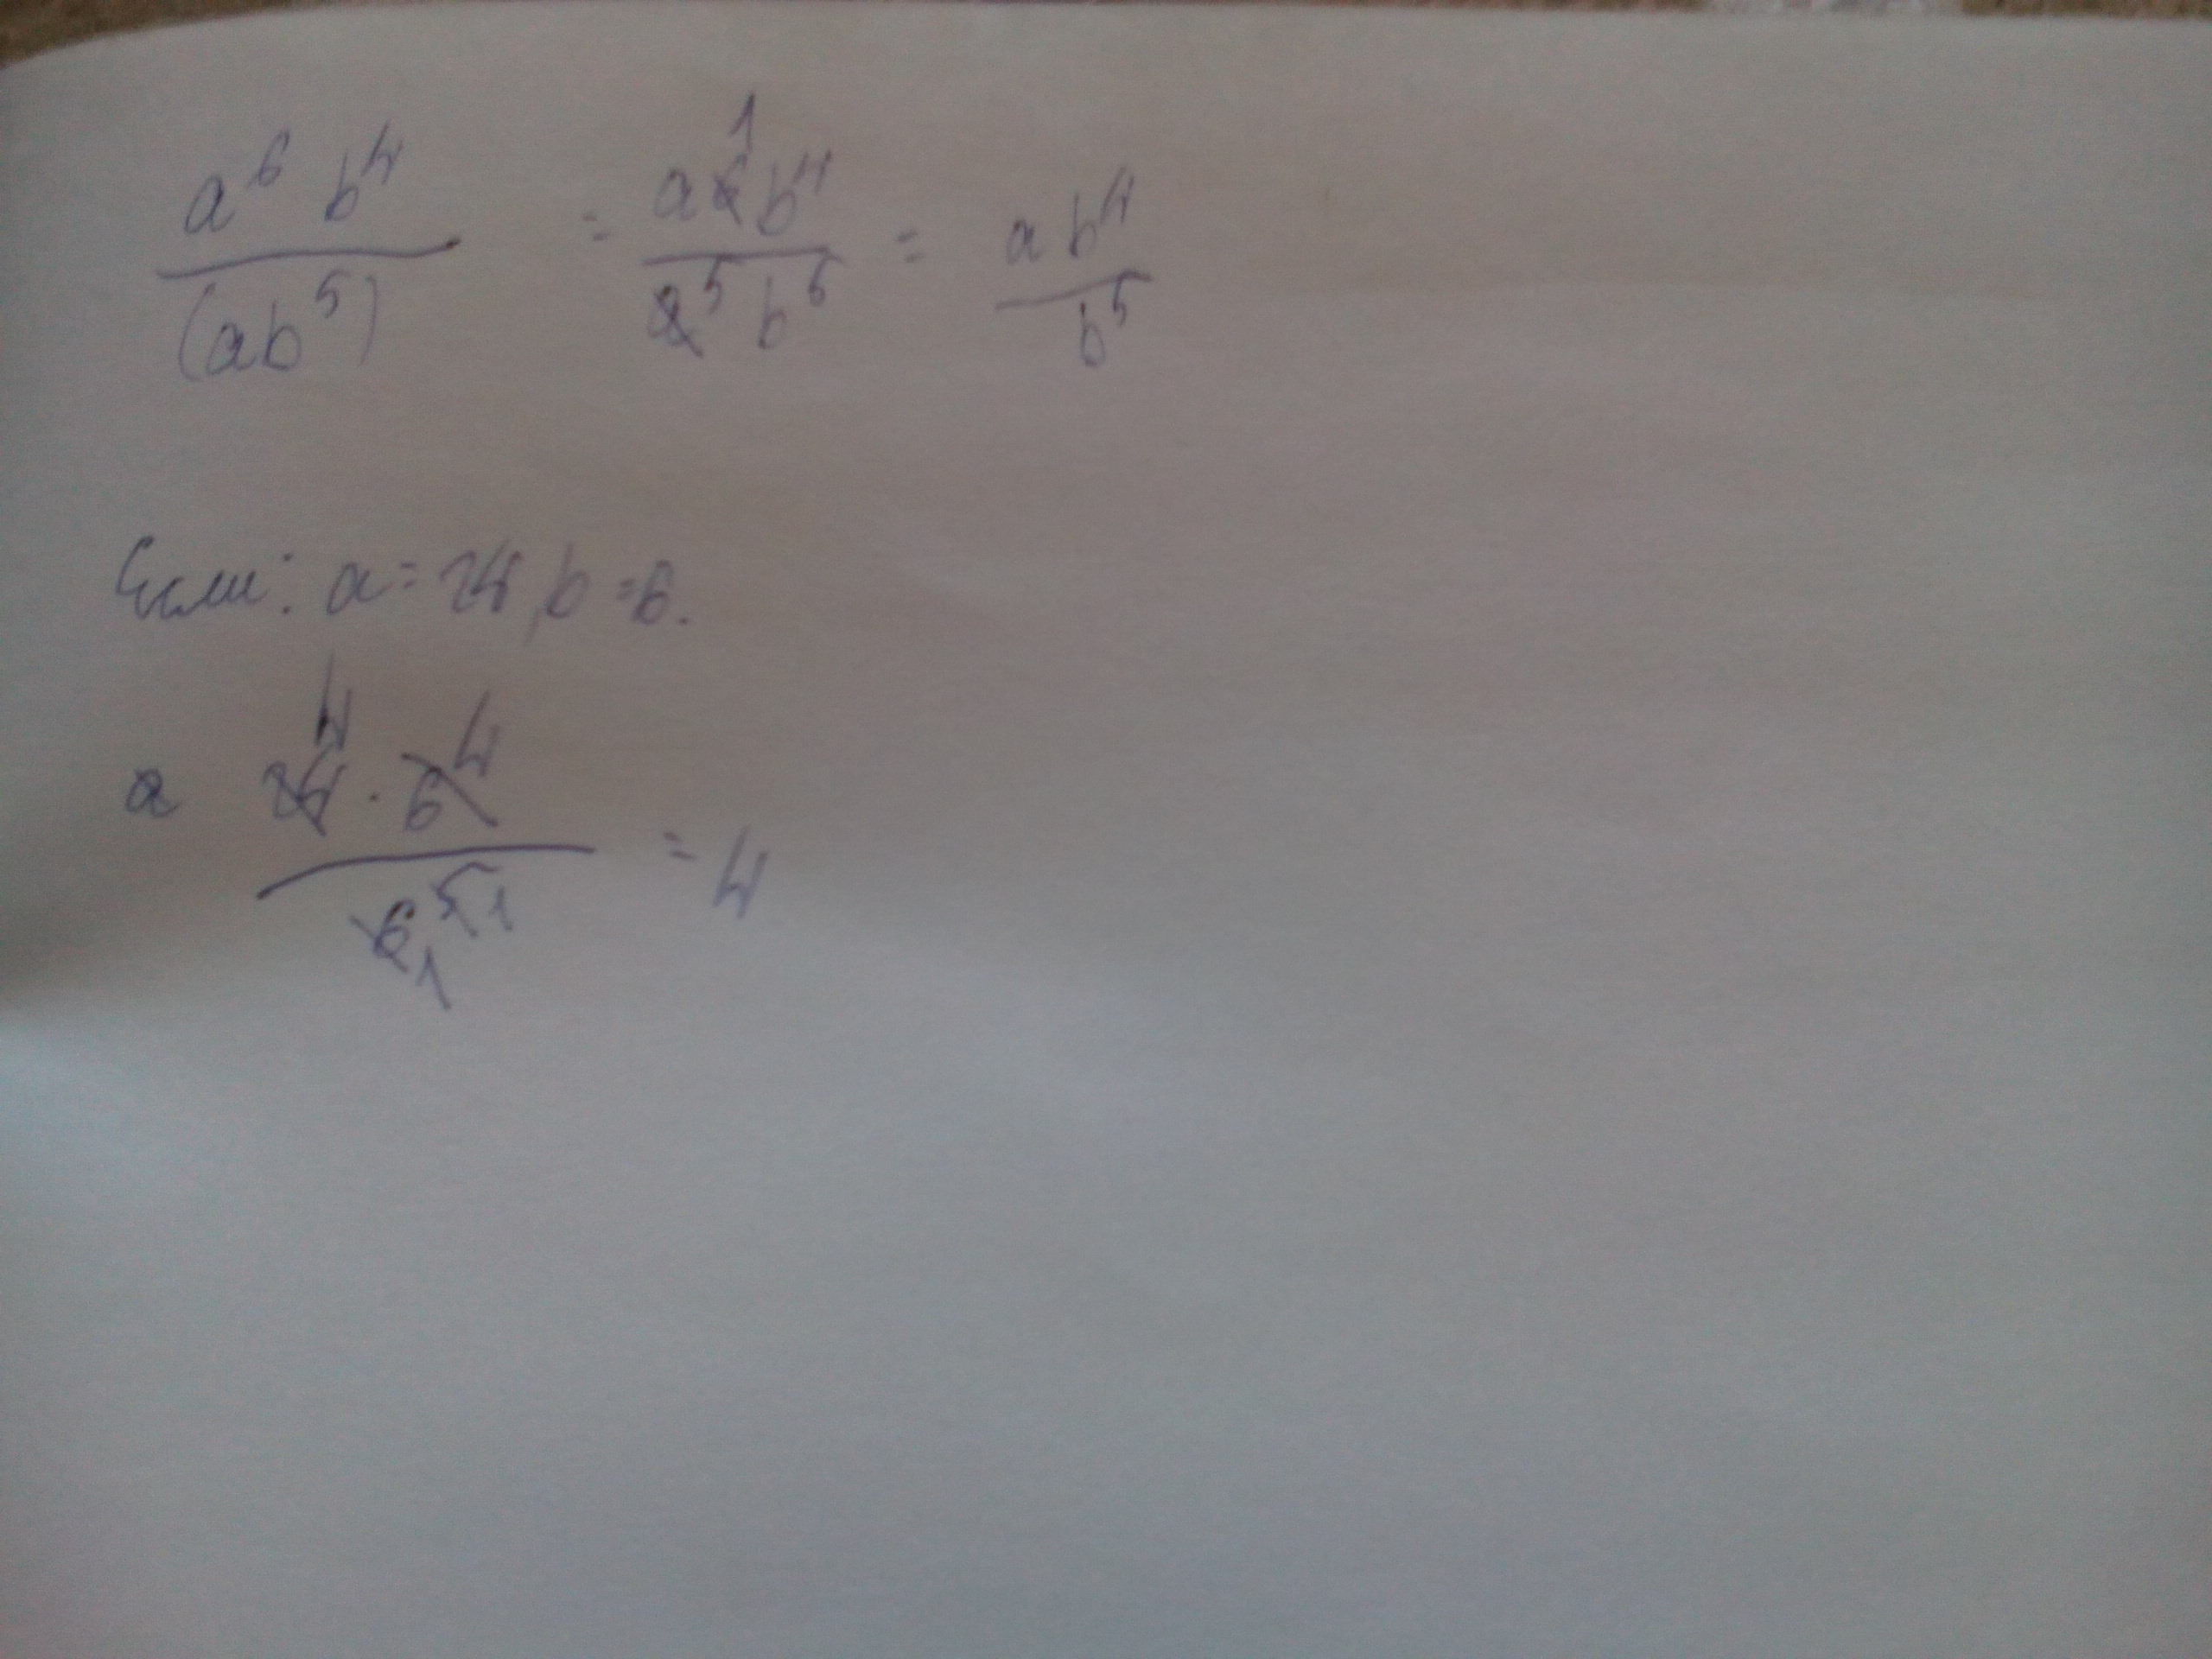 a⁶ b⁴ / (ab⁵) = a⁶ ¹ b⁴ / a⁵ b⁶ = a b⁴ / b⁵
Если: a = 24, b = 6.
24 ⁴ · 6⁴ / 6₁ ⁵ ¹ = 4